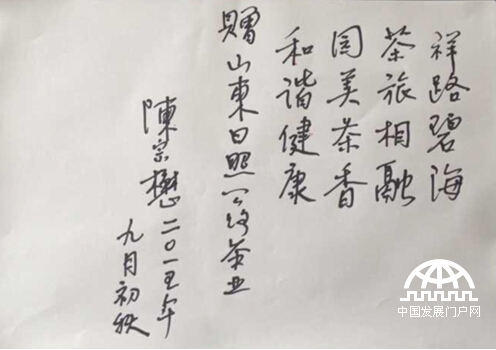 祥路碧海
茶旅相融
园美茶香
和谐健康
贈山東日照茶业
陳宗懋二〇一五年
九月初秋
中国发展门户网